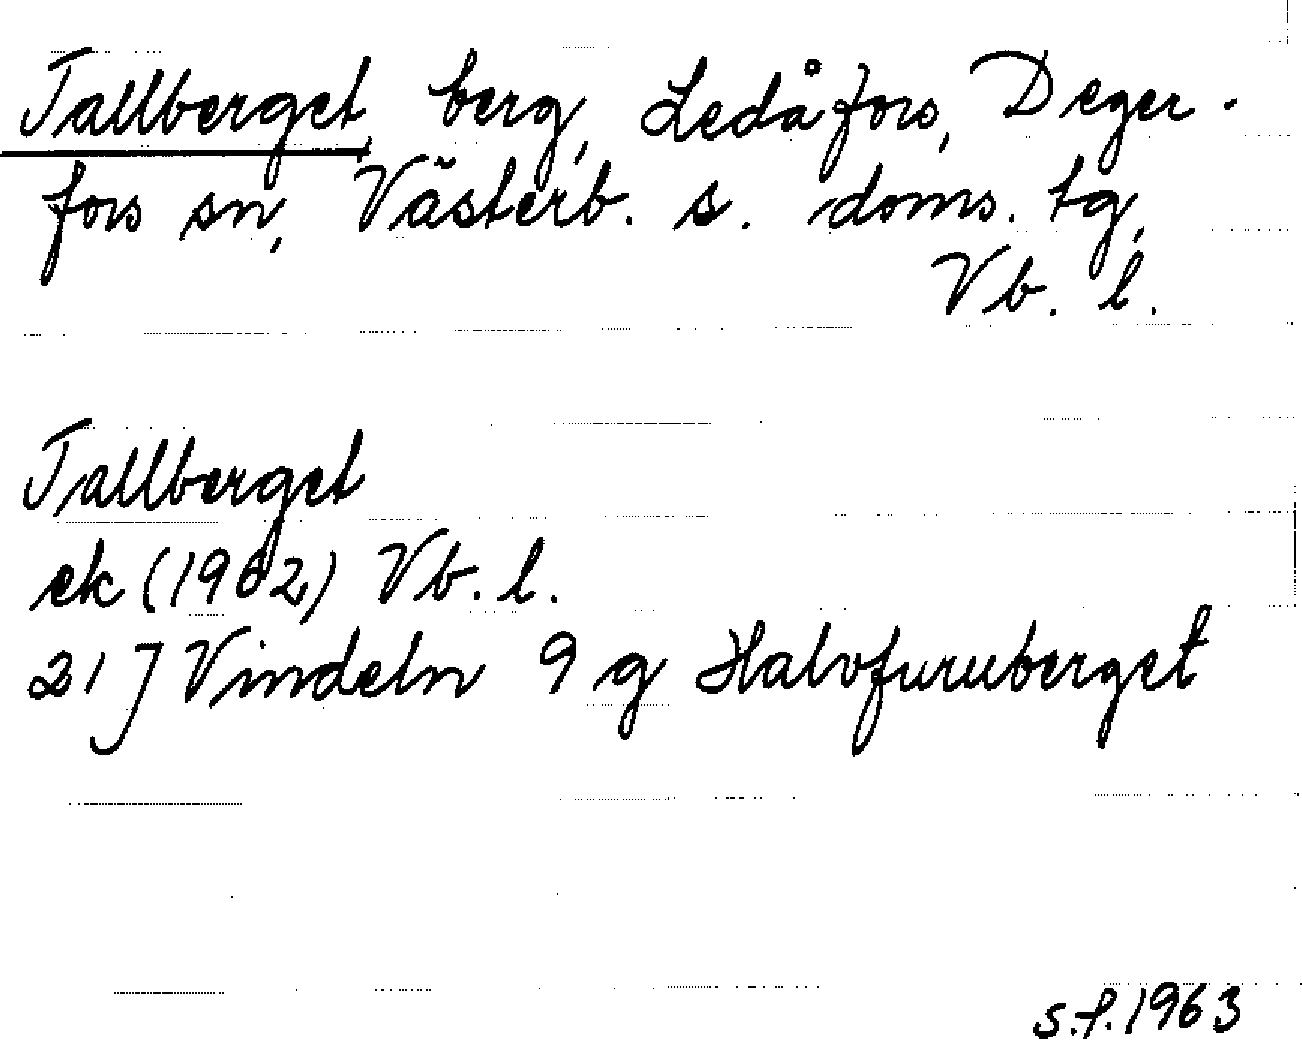 Tallberget, berg, Ledåfors, Deger-
fors sn, Västerb. s. doms. tg,
Vb. l.
Tallberget
ek (1962) Vb. l.
21 J Vindeln 9 g Halvfuruberget
s.f. 1963